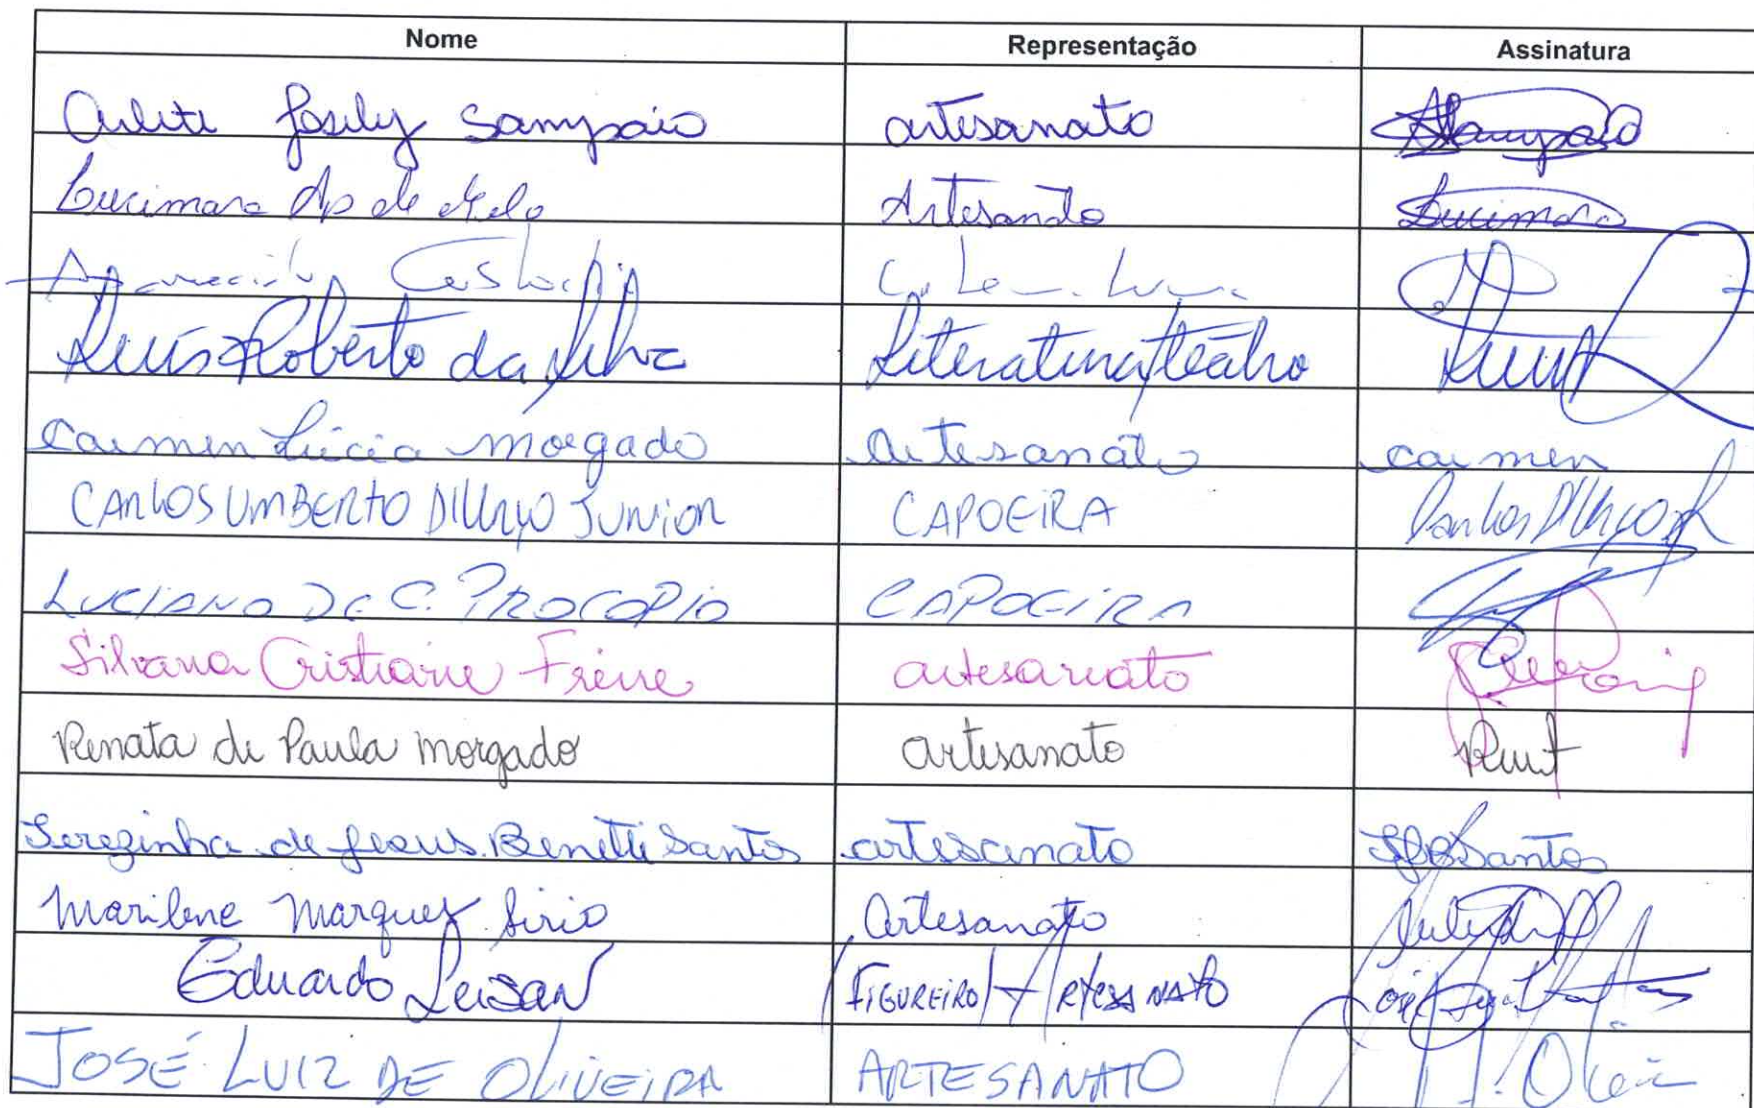 Nome Representação Assinatura
Arlete Josely Sampaio artesanato ASampaio
Lucimara Ap de Melo Artesando Lucimara
Aparecida Custodio
Luís Roberto da Silva Literatura/teatro
Carmen Lúcia Morgado artesanato carmen
CARLOS UMBERTO JUNIOR CAPOEIRA Carlos
LUCIANO DE C. PROCOPIO CAPOEIRA
Silvana Cristiane Freire artesanato
Renata de Paula Morgado artesanato
Terezinha de Jesus Benetti Santos artesanato Santos
Marilene Marques Sirio Artesanato
Eduardo (FIGUREIRO) ARTESANATO José
JOSÉ LUIZ DE OLIVEIRA ARTESANATO